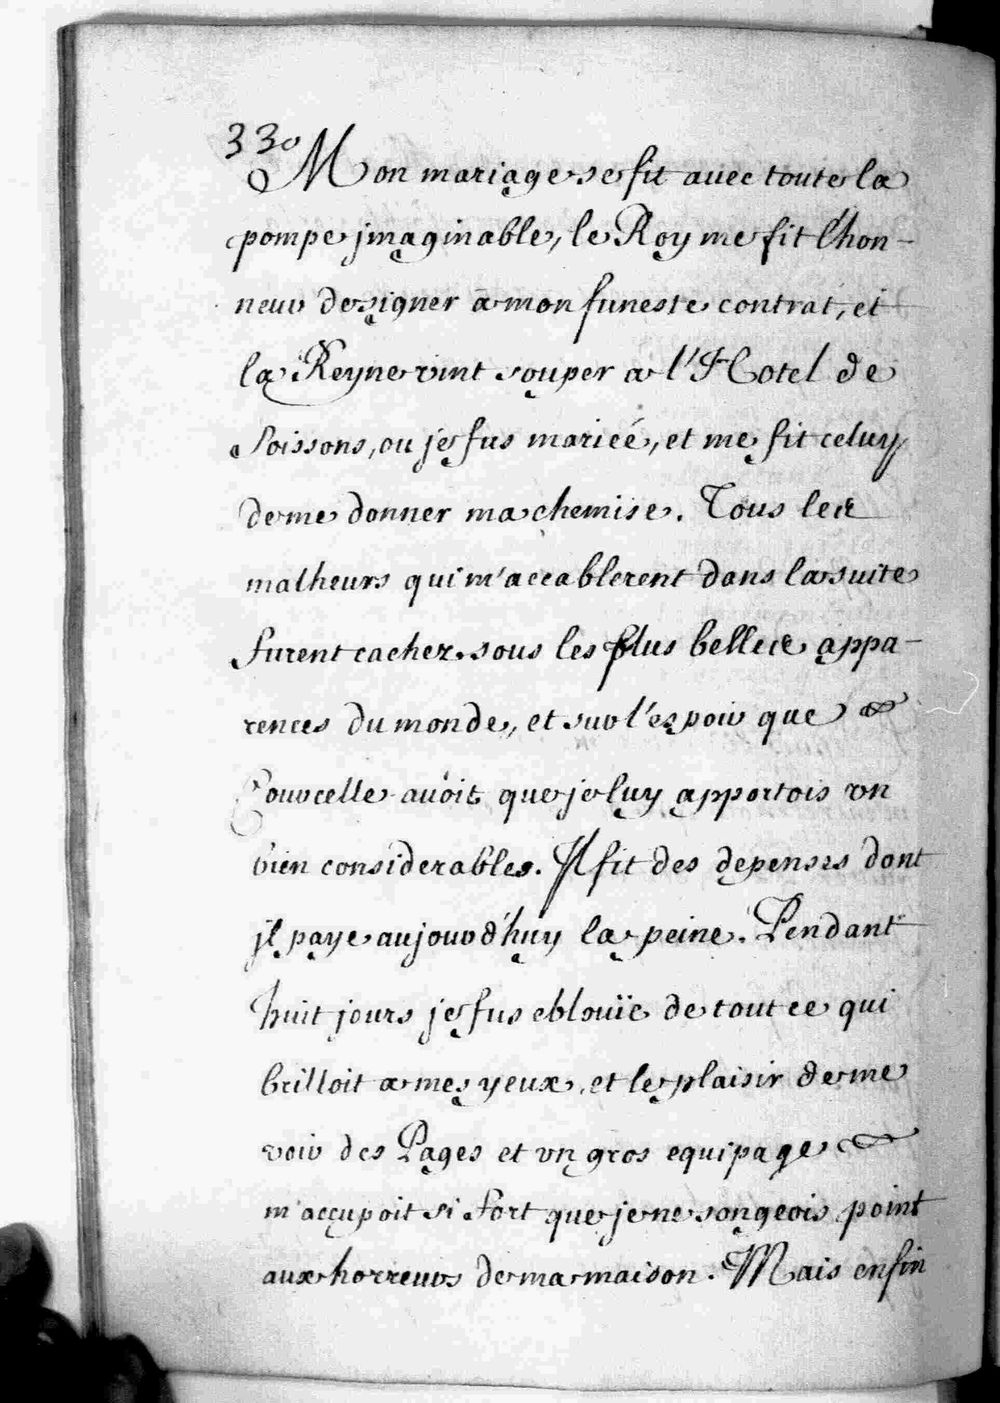 330
Mon mariage se fit avec toute la
pompe jmaginable, le Roy me fit l'hon-
neur de signer a mon funeste contrat, et
la Reyne vint souper a l'Hotel de
Soissons, ou je fus marieé, et me fit celuy
de me donner ma chemise. Tous les
malheurs qui m'accablerent dans la suite
furent cachez sous les plus belles appa-
rences du monde, et sur l'espoir que
Courcelle avoit que je luy apportois vn
bien considerable. Il fit des depenses dont
jl paye aujourd'huy la peine. Pendant
huit jours je fus eblouïe de tout ce qui
brilloit a mes yeux, et le plaisir de me
voir des Pages et vn gros equipage
m'accupoit si fort que je ne songeois point
aux horreurs de ma maison. Mais enfin